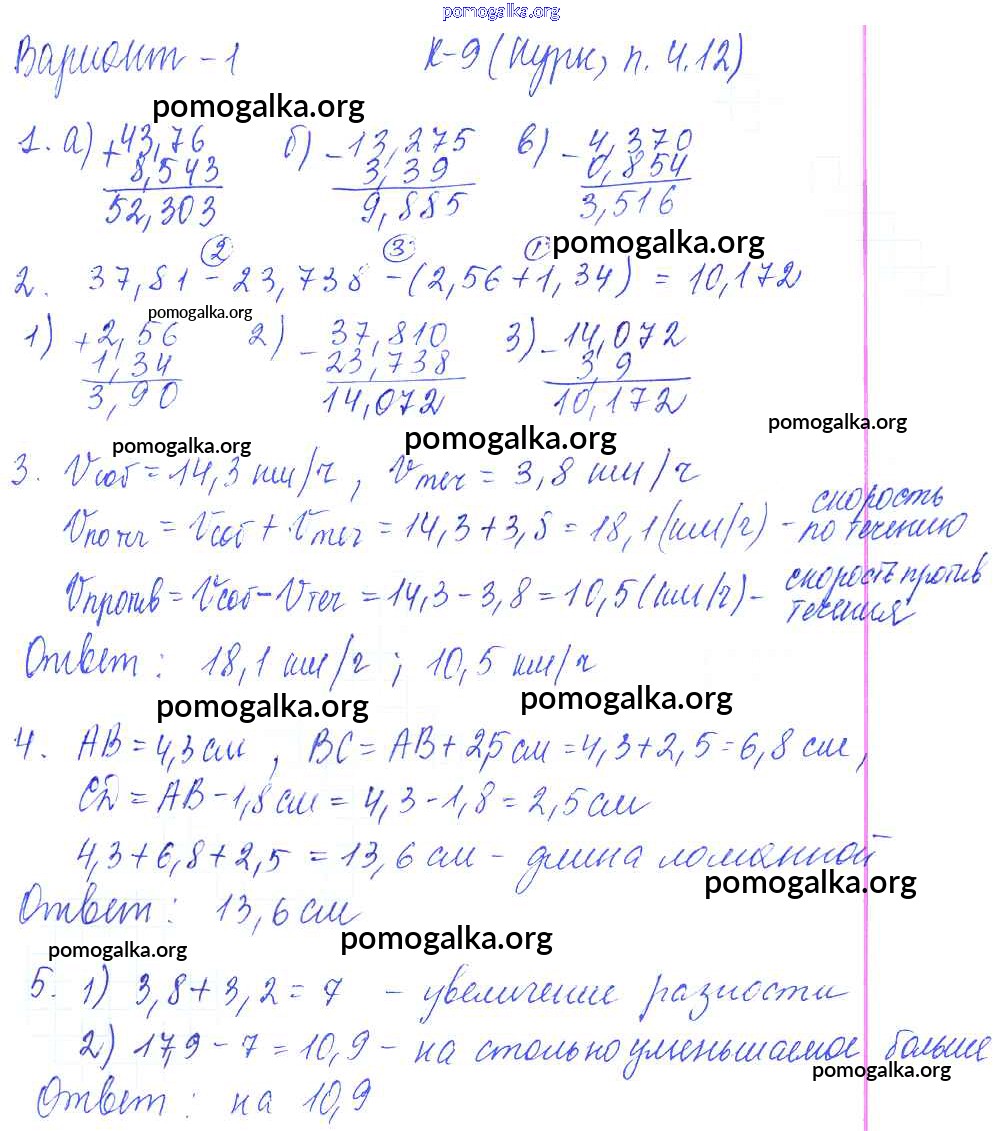 pomogalka.org
Вариант - 1 К-9 (Нурк, п. 4.12)
pomogalka.org
1. а) + 43,76 б) - 13,275 в) - 4,370
8,543 3,39 0,854
52,303 9,885 3,516
2 3 1 pomogalka.org
2. 37,81 - 23,738 - (2,56 + 1,34) = 10,172
pomogalka.org
1) + 2,56 2) - 37,810 3) - 14,072
1,34 23,738 3,9
3,90 14,072 10,172
pomogalka.org
pomogalka.org pomogalka.org
3. Vсоб = 14,3 км/ч, Vтеч = 3,8 км/ч
Vпо теч = Vсоб + Vтеч = 14,3 + 3,8 = 18,1 (км/ч) - скорость по течению
Vпротив = Vсоб - Vтеч = 14,3 - 3,8 = 10,5 (км/ч) - скорость против течения
Ответ: 18,1 км/ч; 10,5 км/ч
pomogalka.org pomogalka.org
4. AB = 4,3 см, BC = AB + 2,5 см = 4,3 + 2,5 = 6,8 см,
CD = AB - 1,8 см = 4,3 - 1,8 = 2,5 см
4,3 + 6,8 + 2,5 = 13,6 см - длина ломанной
pomogalka.org
Ответ: 13,6 см
pomogalka.org pomogalka.org
5. 1) 3,8 + 3,2 = 7 - увеличение разности
2) 17,9 - 7 = 10,9 - на столько уменьшаемое больше
pomogalka.org
Ответ: на 10,9